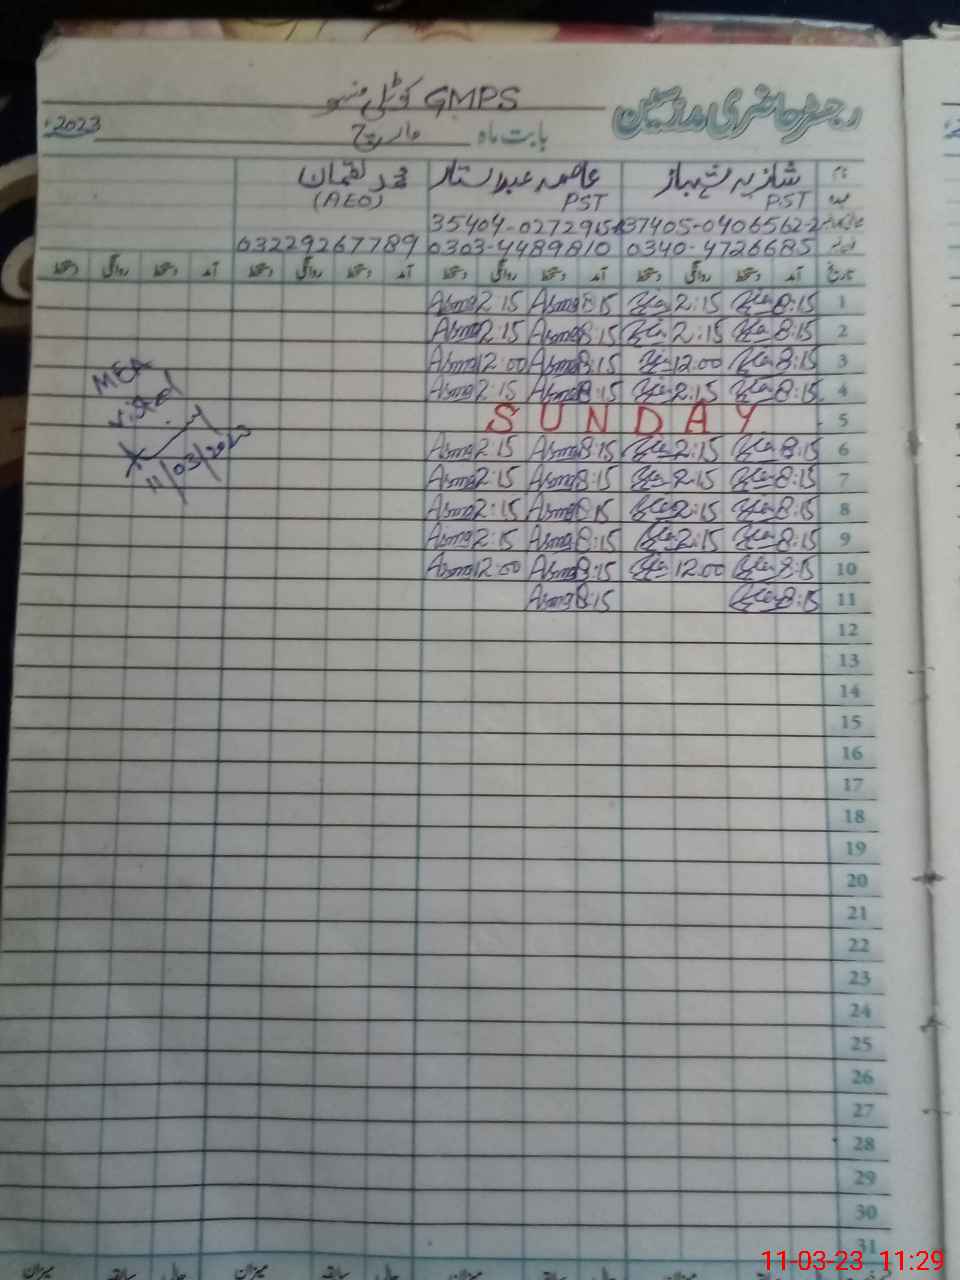 رجسٹر حاضری مدرسین
GMPS کوٹلی
بابت ماہ مارچ 2023ء
نام شازیہ شہباز عاصمہ عبدالستار محمد لقمان
عہدہ PST PST (AEO)
37405-0406562-2 35404-0272915-
0340-4726685 0303-4489810 03229267789
تاریخ آمد دستخط روانگی دستخط آمد دستخط روانگی دستخط آمد دستخط روانگی دستخط آمد دستخط روانگی دستخط
1 8:15 2:15 8:15 Asma 2:15 Asma
2 8:15 2:15 8:15 Asma 2:15 Asma
3 8:15 12:00 8:15 Asma 12:00 Asma
4 8:15 2:15 8:15 Asma 2:15 Asma
5 SUNDAY
6 8:15 2:15 8:15 Asma 2:15 Asma
7 8:15 2:15 8:15 Asma 2:15 Asma
8 8:15 2:15 8:15 Asma 2:15 Asma
9 8:15 2:15 8:15 Asma 2:15 Asma
10 8:15 12:00 8:15 Asma 12:00 Asma
11 8:15 8:15 Asma
MEA
visited
11/03/2023
12
13
14
15
16
17
18
19
20
21
22
23
24
25
26
27
28
29
30
31
میزان سابقہ حال میزان سابقہ حال
11-03-23 11:29